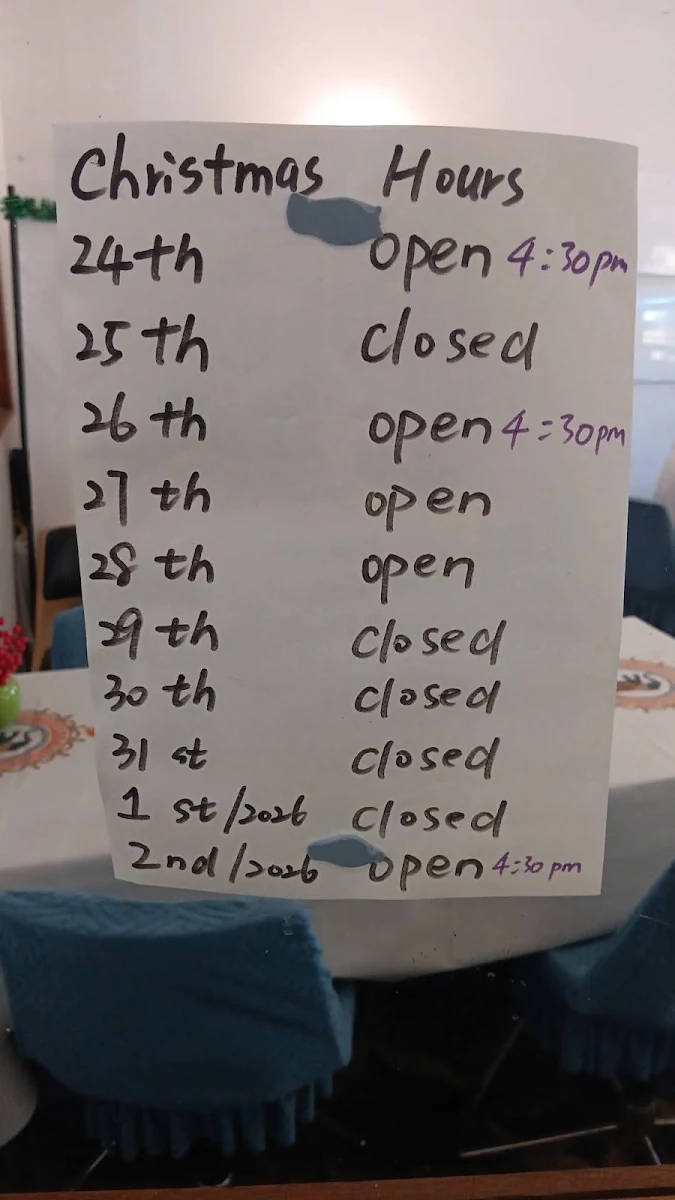 Christmas Hours
24th open 4:30pm
25th closed
26th open 4:30pm
27th open
28th open
29th closed
30th closed
31st closed
1st/2026 closed
2nd/2026 open 4:30pm